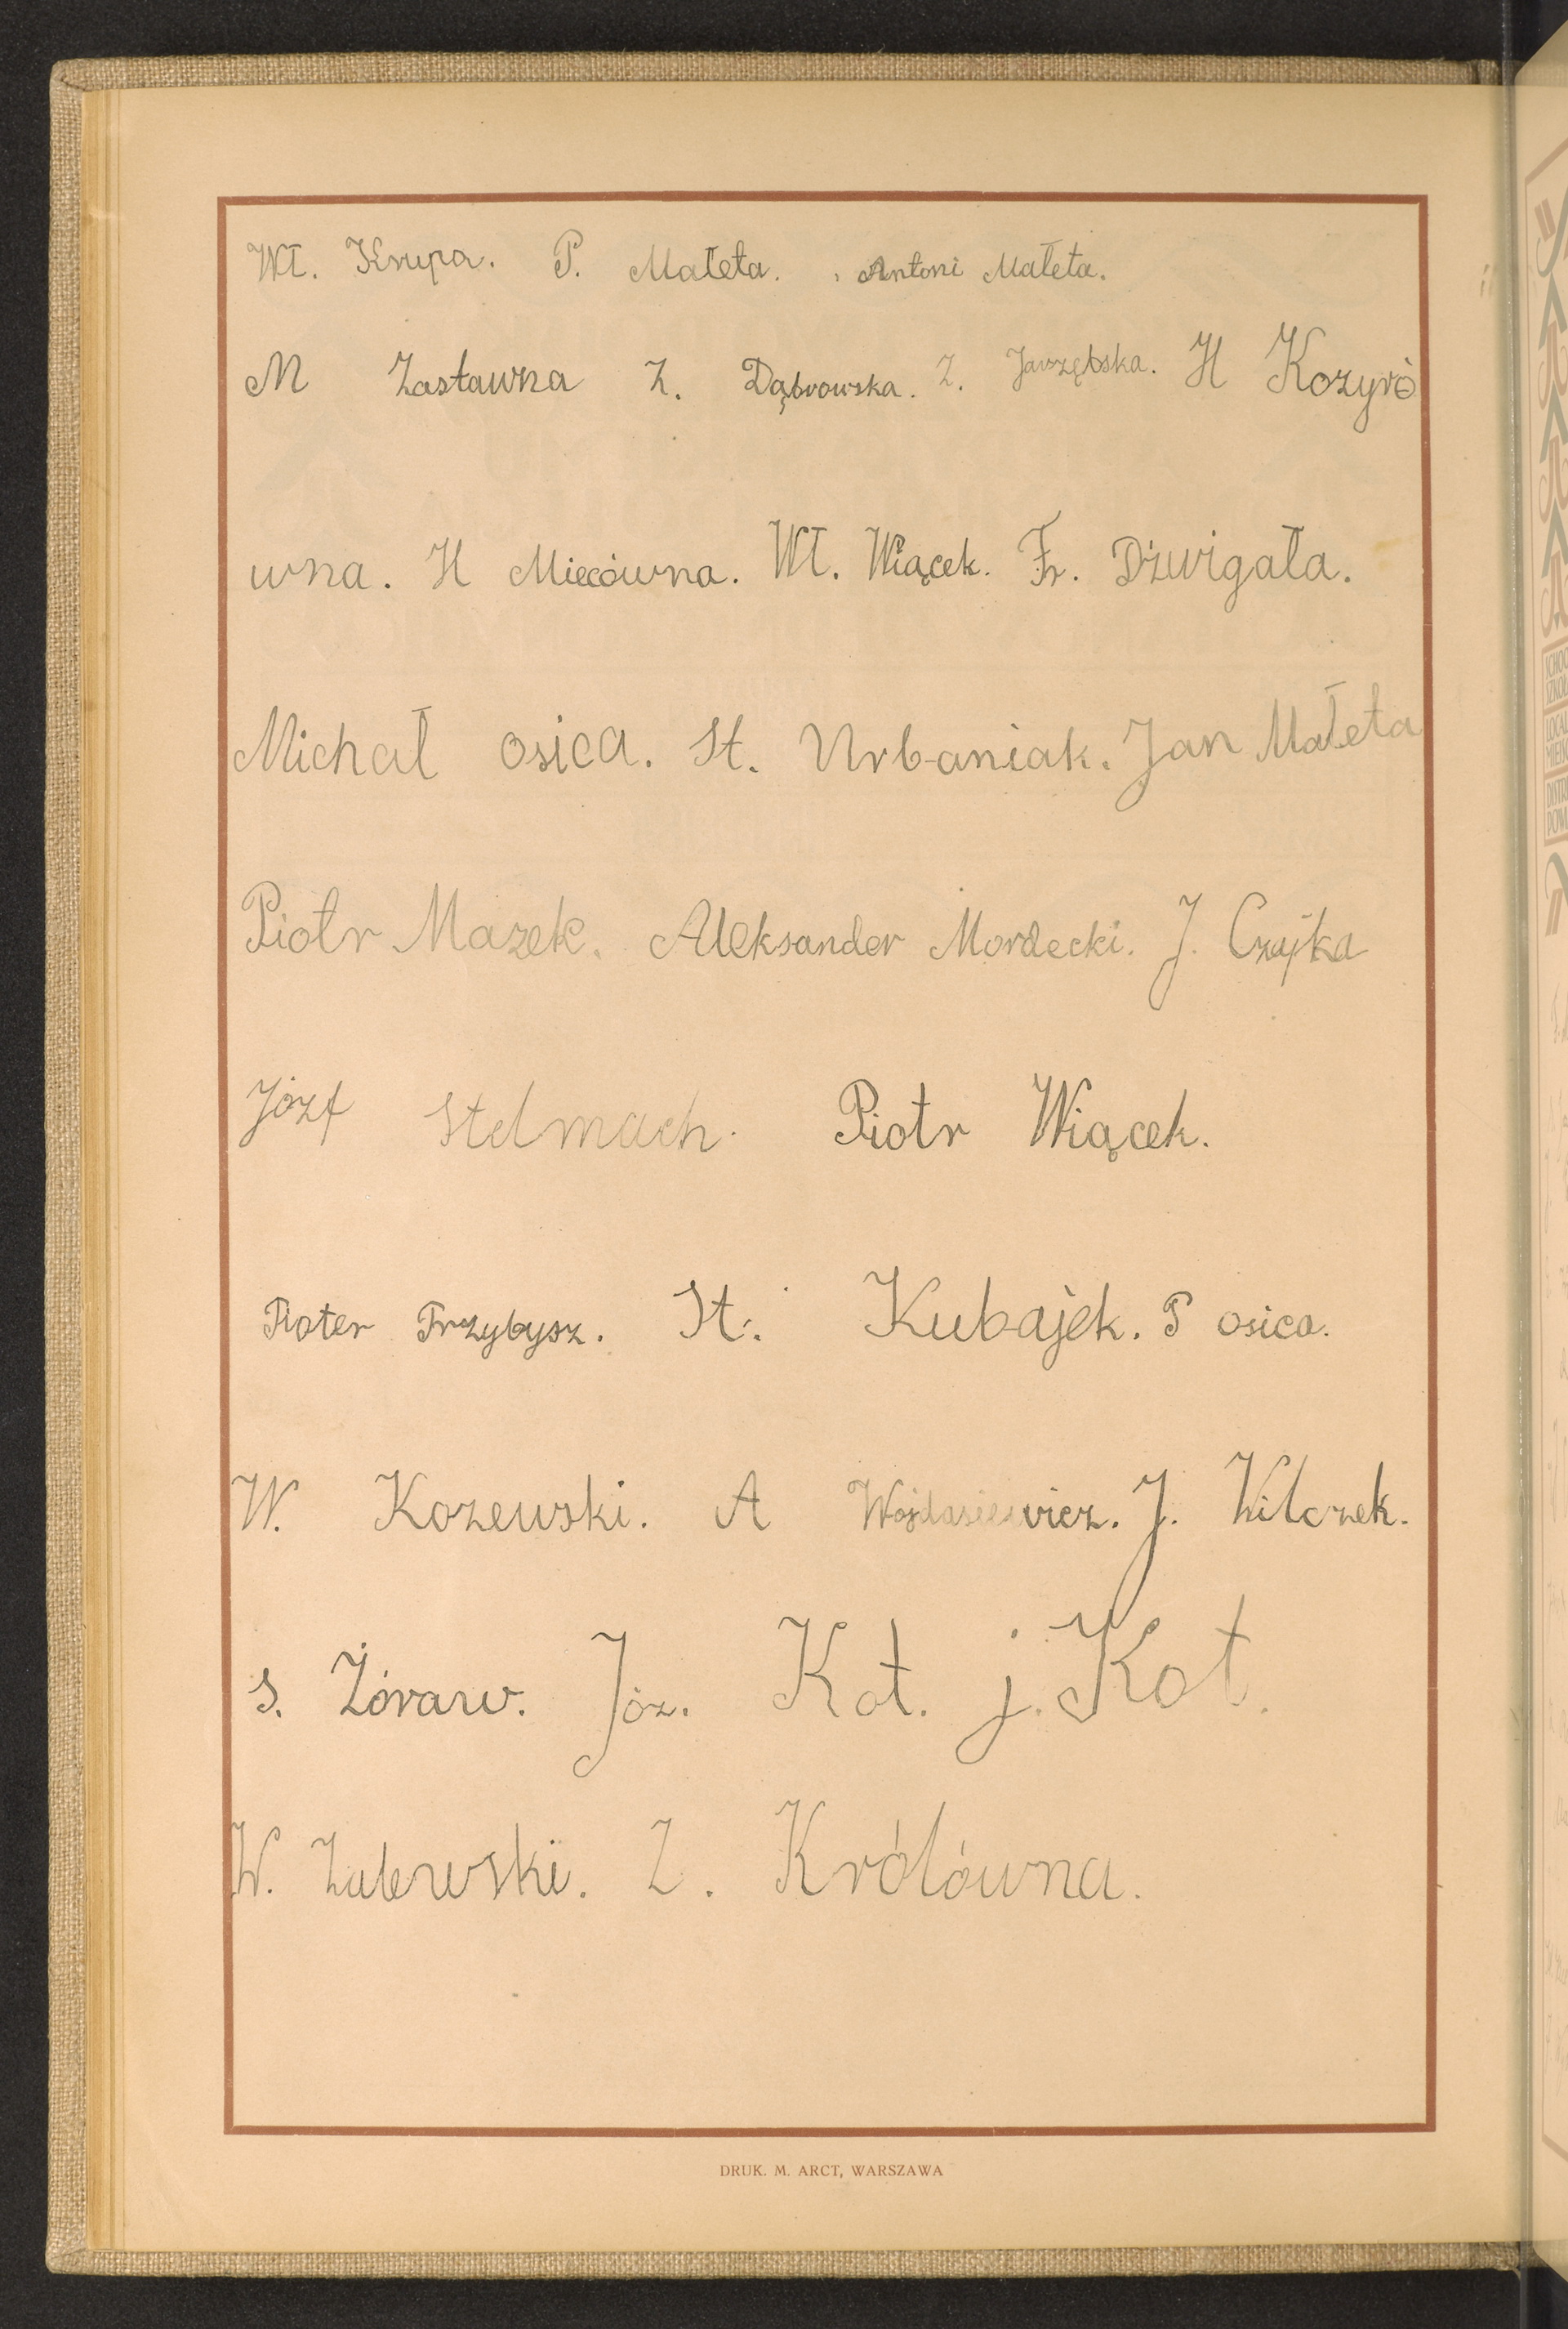 Wł. Krupa. P. Małeta. Antoni Małeta.
M Zastawna Z. Dąbrowska. Z. Jarzębska. H Kozyró
wna. H Miecówna. Wł. Wiącek. Fr. Dźwigała.
Michał osica. St. Urbaniak. Jan Małeta
Piotr Mazek. Aleksander Mordecki. J. Czajka
Józf Stelmach. Piotr Wiącek.
Pioter Przybysz. St. Kubajek. P osica.
W. Kozewski. A Wojdasiewicz. J. Wilczek.
S. Żóraw. Józ. Kot. j. Kot.
W. Zalewski. Z. Królówna.
DRUK. M. ARCT, WARSZAWA